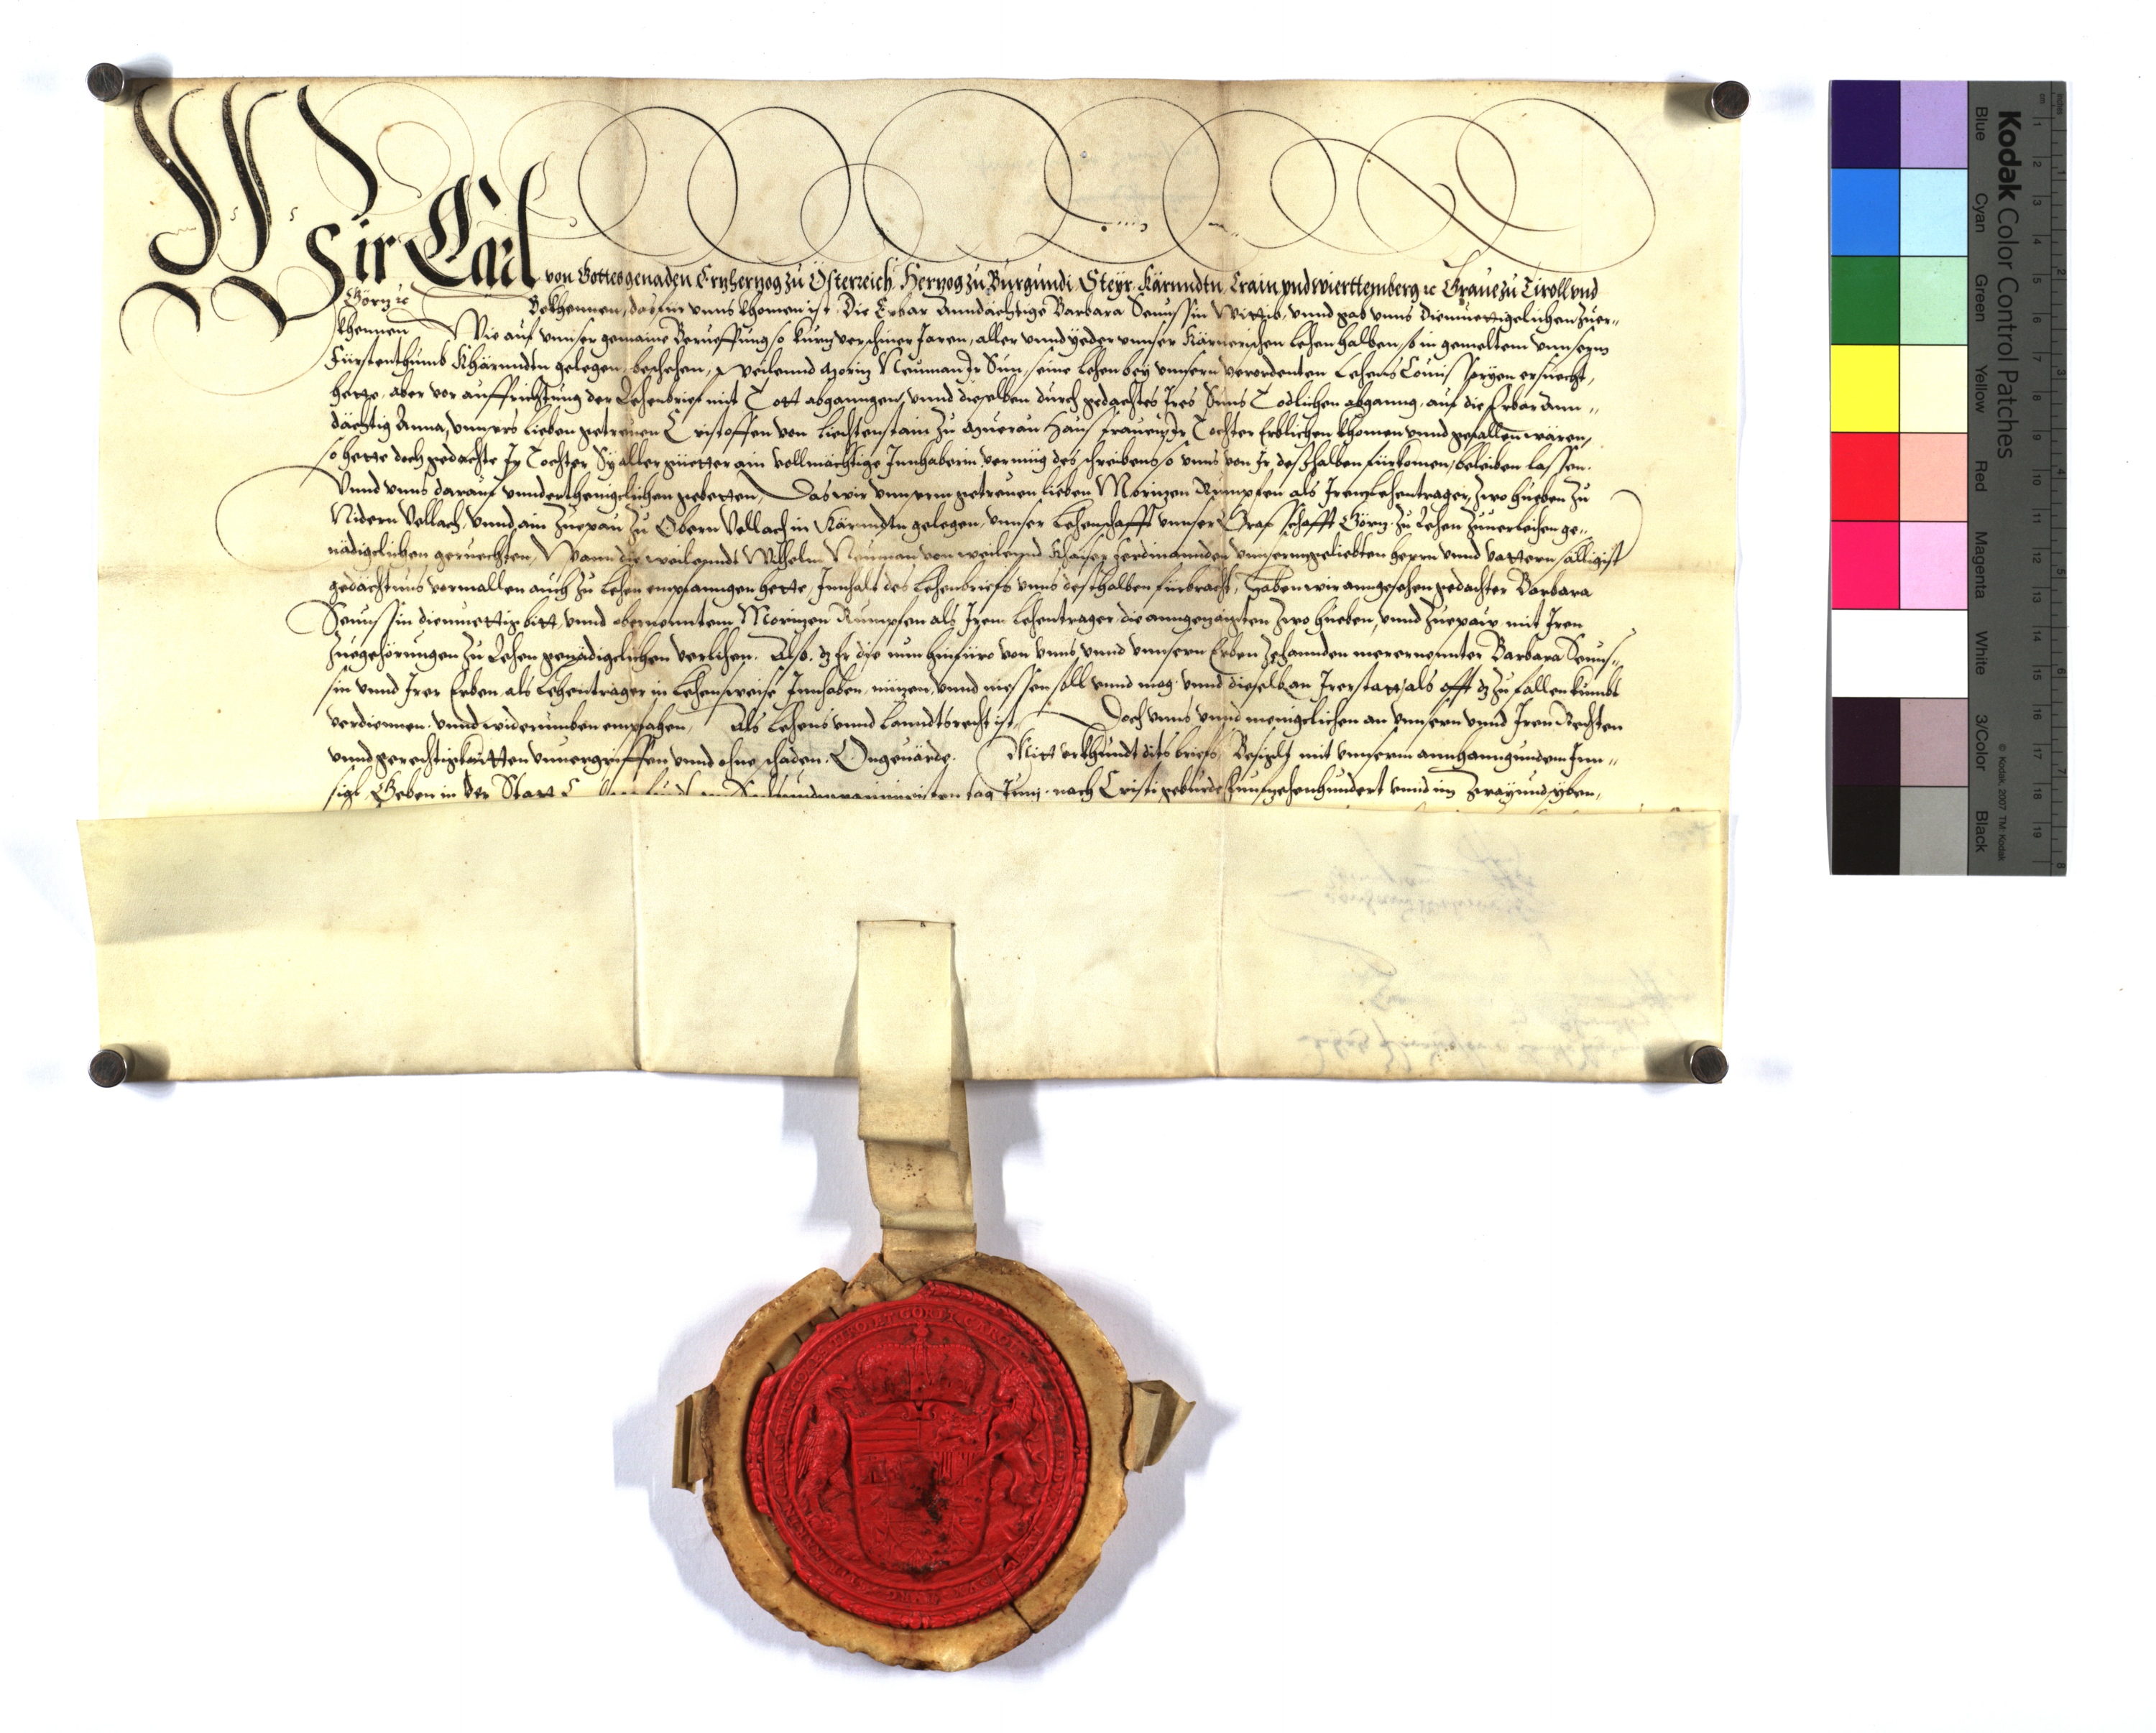 Wir Carl von Gottes genaden Ertzhertzog zu Österreich Hertzog zu Burgundi Steyr Kärnndtn Crain vnd wierttemberg ꝛc Graue zu Tiroll vnd
Görtz ꝛc Bekhennen, das für vnns khomen ist. Die Erbar Anndächtige Barbara Seenussin Wittib, vnnd gab vnns Diemuettigclichen zuer-
khennen Wie auf vnnser gemaine Berueffung so kurtz verschiner Jaren, aller vnnd yeder vnnser Kärnerischen Lehen halben, so in gemeltem vnnserm
Fürstenthumb Khärnndtn gelegen, beschehen, Weilennd Moritz Neuman Ir Sun, seine Lehen bey vnnsern verordenten Lehens Comissaryen ersuecht,
hette, aber vor auffrichtung der Lehenbrief mit Tott abganngen, vnnd dieselben durch gedachtes Ires Suns Todlichen abganng, auf die Erbar Ann-
dächtig Anna, vnnsers lieben getreuen Cristoffen von Liechtenstain zu Muerau Hausfrauen, Ir Tochter Erblichen khomen vnnd gefallen wären,
so hette doch gedachte Ir Tochter Sy aller güetter ain vollmächtige Innhaberin vermüg des schreibens so vnns von Ir desthalben fürkomen, beleiben lassen.
Vnnd vnns darauf vnnderthenigclichen gebetten, Das wir vnnserm getreuen lieben Moritzen Rumpfen als Irem Lehentrager, zwo hueben zu
Nidern Vellach, vnnd ain Zuepau zu Obern Vellach in Kärnndtn gelegen, vnnser Lehenschafft vnnser Graf schafft Görtz zu Lehen zuuerleihen ge-
nädigclichen geruechten, Wann die weilennd Wilhelm Neuman von weilennd Khaiser Ferdinannden vnnserm geliebten herrn vnnd Vattern sälligist
gedächtnus vormallen auch zu Lehen empfanngen hette, Innhalt des Lehenbriefs vnns desthalben fürbracht, Haben wir anngesehen gedachter Barbara
Seenussin diemuettig bitt, vnnd obernenntem Moritzen Rumpfen als Irem Lehentrager die anngezaigten zwo hueben, vnnd Zuepaw mit Iren
Zuegehörungen zu Lehen genädigclichen verlihen. Also, dz Er die nun hinfüro von vnns vnnd vnnsern Erben Zehannden merernennter Barbara Seenus-
sin vnnd Irer Erben als Lehentrager in Lehensweise Innhaben, nützen, vnnd niessen soll vnnd mag, vnnd dieselb an Irer statt, als offt dz zu fallen kumbt
verdiennen, vnnd widerumben empfahen, Als Lehens vnnd Lanndtsrecht ist, Doch vnns vnnd menigclichen an vnnsern vnnd Iren Rechten
vnnd gerechtigkaitten vnuergriffen vnnd ohne schaden. Ongeuärde. Mitt vrkhundt dits briefs Besiglt mit vnnserm annhanngundem Inn-
sigl. Geben in der Statt tag Junij, nach Cristi geburde Funfzehenhundert vnnd im Zwayundsyben,